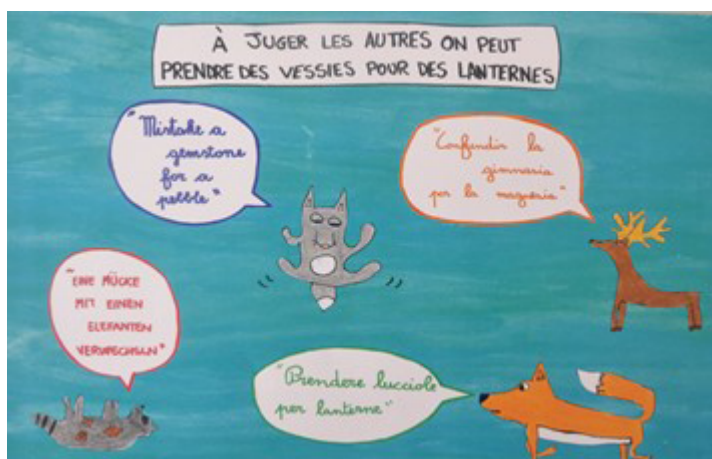 À JUGER LES AUTRES ON PEUT
PRENDRE DES VESSIES POUR DES LANTERNES
"Mistake a
gemstone
for a
pebble"
"Confindir la
gimnasia
per la magnesia"
"EINE MÜCKE
MIT EINEN
ELEFANTEN
VERWECHSELN"
"Prendere lucciole
per lanterne"